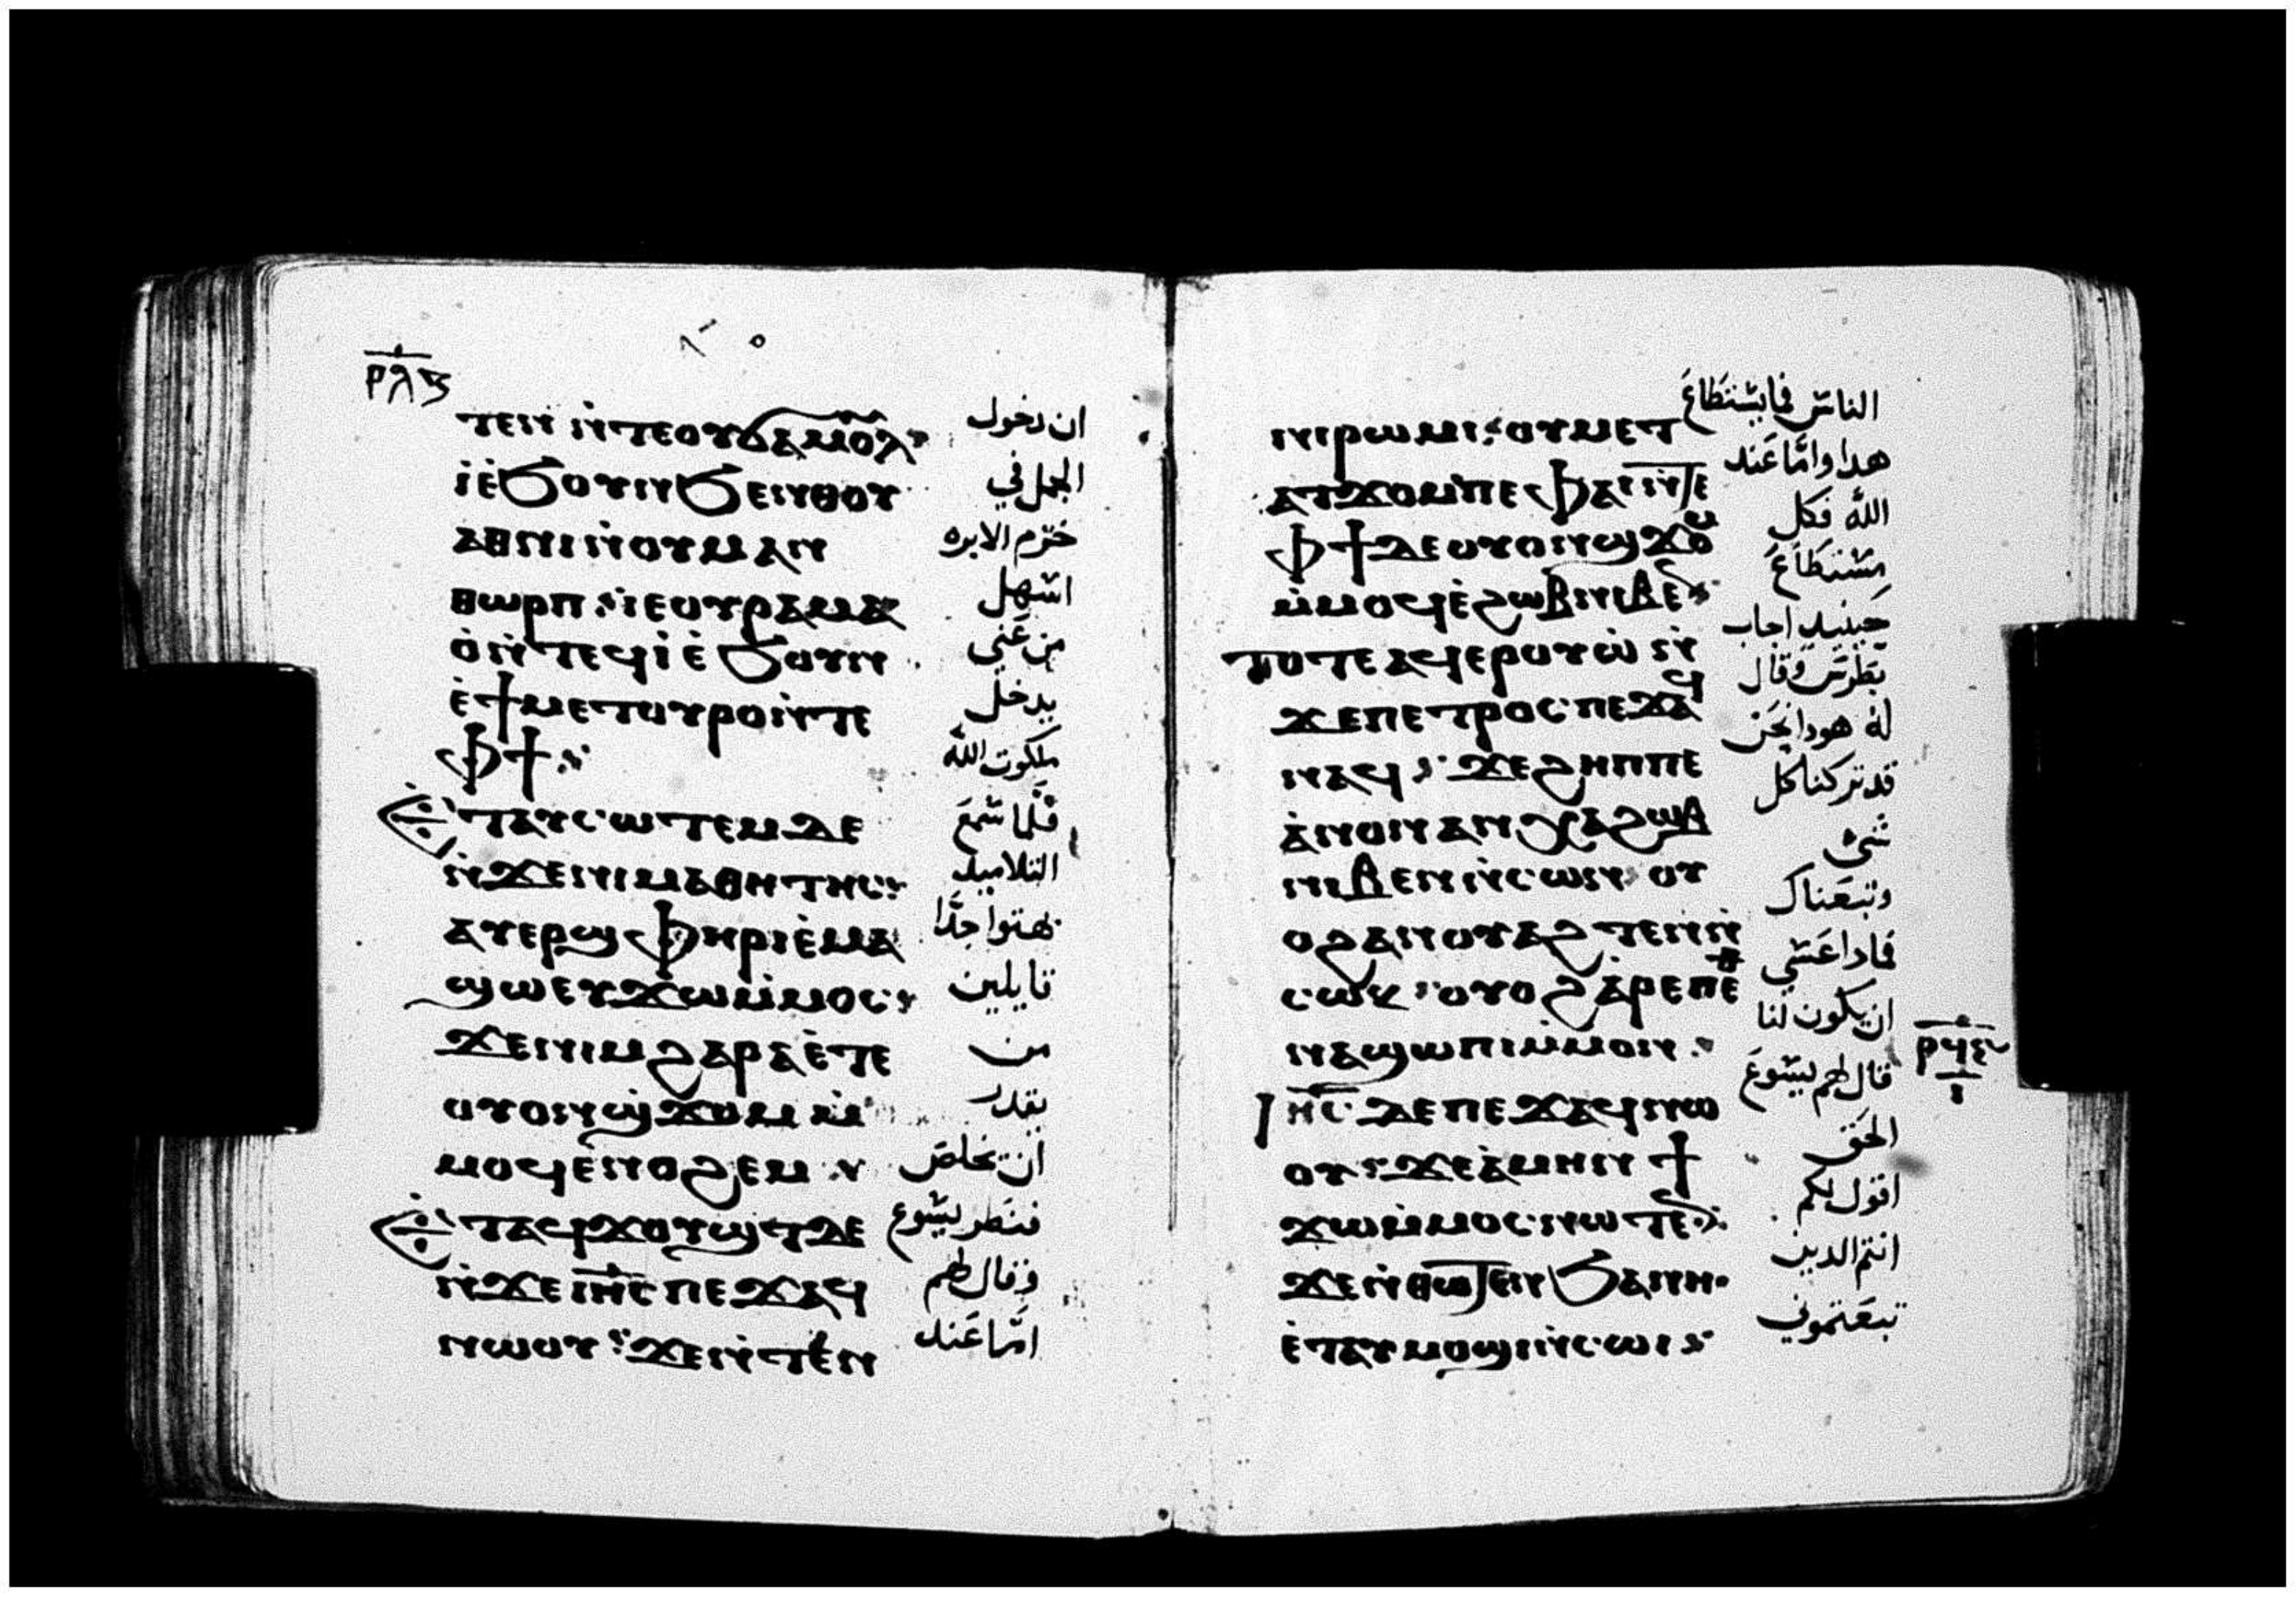 ⲣϥⲋ
ⲧⲉⲛ ⲛ̀ⲧⲉⲟⲩϭⲁⲙⲟⲩⲗ
ⲓ̀ⲉ̀ϧⲟⲩⲛϧⲉⲛⲑⲟⲩ
ⲁⲑⲛⲓⲛ̀ⲟⲩⲙⲁⲛ
ⲑⲱⲣⲡ ⲓⲉⲟⲩⲣⲁⲙⲁ
ⲟ̀ⲛ̀ⲧⲉϥⲓ̀ ⲉ̀ϧⲟⲩⲛ
ⲉ̀ϯⲙⲉⲧⲟⲩⲣⲟⲛ̀ⲧⲉ
ⲫϯ
ⲉ̀ⲧⲁⲩⲥⲱⲧⲉⲙⲇⲉ
ⲛ̀ϫⲉⲛⲓⲙⲁⲑⲏⲧⲏⲥ
ⲁⲩⲉⲣϣⲫⲏⲣⲓⲉ̀ⲙⲁ
ϣⲱⲉⲩϫⲱⲙ̀ⲙⲟⲥ
ϫⲉⲛⲓⲙϩⲁⲣⲁⲉ̀ⲧⲉ
ⲟⲩⲟⲛϣϫⲟⲙ ⲙ̀
ⲙⲟϥⲉ̀ⲛⲟϩⲉⲙ
ⲉ̀ⲧⲁϥϫⲟⲩϣⲧⲇⲉ
ⲛ̀ϫⲉⲓⲏⲥ ⲡⲉϫⲁϥ
ⲛⲱⲟⲩ ϫⲉⲛ̀ⲧⲉⲛ
ان دخول
الجمل في
خرم الابره
اسهل
من غني
يدخل
ملكوت الله
فلما سمع
التلاميد
بهتوا جدًا
قايلين
من
يقدر
ان يخلص
فنظر يسوع
وقال لهم
امّا عند
ⲛⲓⲣⲱⲙⲓ ⲟⲩⲙⲉⲧ
ⲁⲧϫⲟⲙⲡⲉ ⲫⲁⲓⲛ̀ⲧⲉ
ⲫϯⲇⲉⲟⲩⲟⲛϣϫⲟⲙ
ⲙ̀ⲙⲟϥⲉ̀ϩⲱⲃⲛⲓⲃⲉⲛ
ⲧⲟⲧⲉⲁϥⲉⲣⲟⲩⲱ̀ ⲛ̀
ϫⲉⲡⲉⲧⲣⲟⲥ ⲡⲉϫⲁϥ
ⲛⲁϥ ϫⲉϩⲏⲡⲡⲉ
ⲁ̀ⲛⲟⲛⲁⲛⲭⲁϩⲱⲃ
ⲛⲓⲃⲉⲛ ⲛ̀ⲥⲱⲛ ⲟⲩ
ⲟϩⲁⲛⲟⲩⲁϩⲧⲉⲛⲛ̀
ⲥⲱⲕ ⲟⲩⲟϩⲁ̀ⲣⲉⲡⲉ
ⲛⲁϣⲱⲡⲓⲙ̀ⲙⲟⲛ
ⲓⲏⲥ ⲇⲉⲡⲉϫⲁϥⲛⲱ
ⲟⲩ ϫⲉⲁ̀ⲙⲏⲛ ϯ
ϫⲱⲙ̀ⲙⲟⲥⲛⲱⲧⲉⲛ
ϫⲉⲛ̀ⲑⲱⲧⲉⲛ ϧⲁⲛⲏ
ⲉ̀ⲧⲁⲩⲙⲟϣⲓⲛ̀ⲥⲱⲓ
الناس فما يستطاع
هدا وامّا عند
الله فكل
مستطاع
حينيد اجاب
بطرس وقال
له هودا نحن
قد تركنا كل
شي
وتبعناك
فادا عسي
ان يكون لنا
قال لهم يسوع
الحق
اقول لكم
انتم الدين
تبعتموني